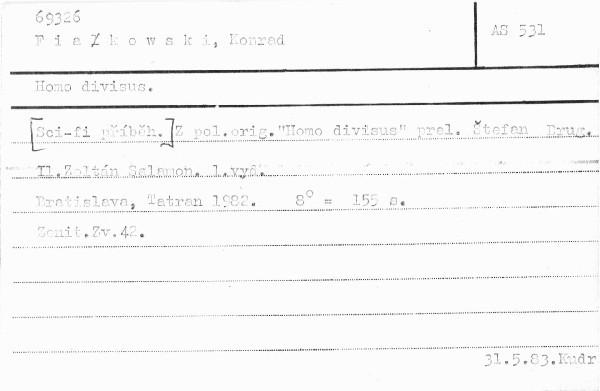 69326
F i a ł k o w s k i, Konrad
AS 531
Homo divisus.
[Sci-fi příběh.] Z pol.orig."Homo divisus" prel. Štefan Drug.
Il.Zoltán Salamon. 1.vyd.
Bratislava, Tatran 1982. 8° = 155 s.
Zenit.Zv.42.
31.5.83.Kudr